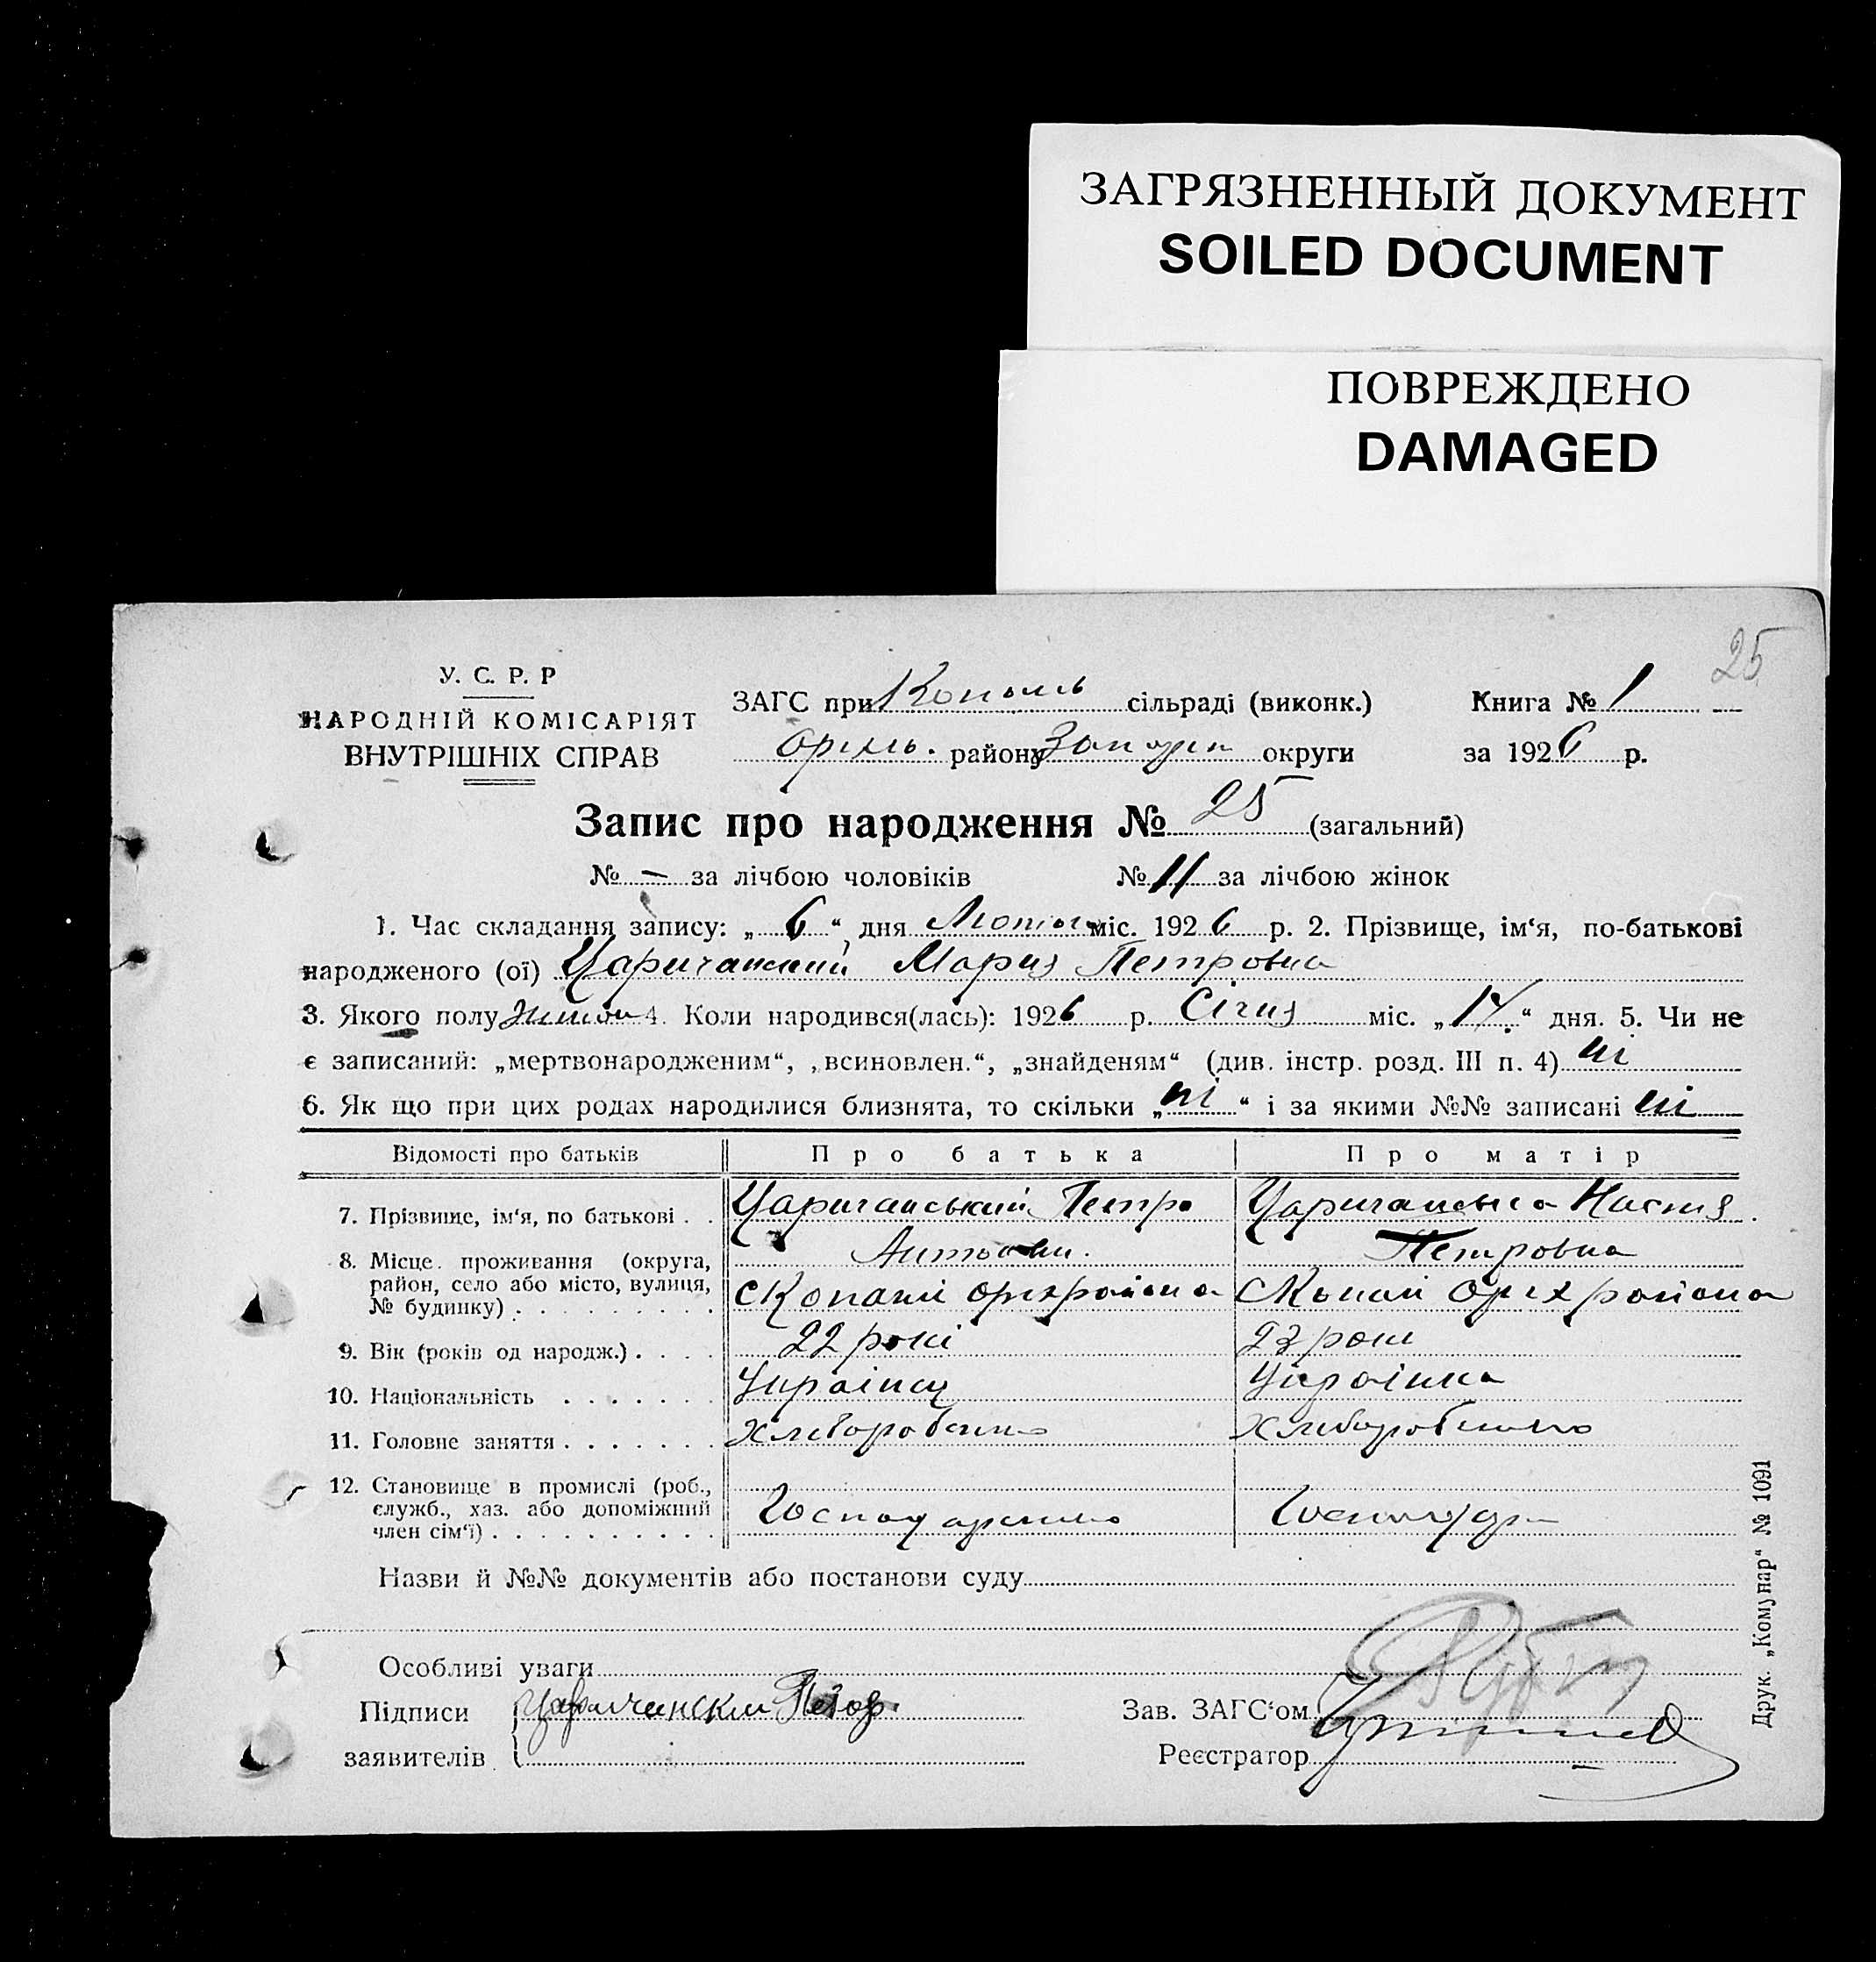 ЗАГРЯЗНЕННЫЙ ДОКУМЕНТ
SOILED DOCUMENT
ПОВРЕЖДЕНО
DAMAGED
25
У. С. Р. Р
НАРОДНІЙ КОМІСАРІЯТ
ВНУТРІШНІХ СПРАВ
ЗАГС при сільраді (виконк.) Книга № 1
Оріхів. району Запоріз округи за 1926 р.
Запис про народження № 25 (загальний)
№ – за лічбою чоловіків № 11 за лічбою жінок
1. Час складання запису: „ 6 “ дня Лютого міс. 1926 р. 2. Прізвище, ім‘я, по-батькові
народженого (ої) Царичанский Мария Петровна
3. Якого полу 4. Коли народився(лась): 1926 р. Січня міс. „ 17 “ дня. 5. Чи не
є записаний: „мертвонародженим“, „всиновлен.“, „знайденям“ (див. інстр. розд. III п. 4) ні
6. Як що при цих родах народилися близнята, то скільки „ ні “ і за якими №№ записані ні
Відомості про батьків Про батька Про матір
7. Прізвище, ім‘я, по батькові . . Царичанський Петро Царичанська Настя
Петровна
8. Місце проживання (округа,
район, село або місто, вулиця,
№ будинку) . . . . . . . . . с Копані Оріхрайона с Копані Оріхрайона
9. Вік (років од народж.) . . . . 22 рокі 23 роки
10. Національність . . . . . . . Українец Українка
11. Головне заняття . . . . . . . Хлеборобство Хлиборобство
12. Становище в промислі (роб.,
служб., хаз. або допоміжний
член сім‘ї) . . . . . . . . . .
Назви й №№ документів або постанови суду
Особливі уваги
Підписи
заявителів Царичански Петор
Зав. ЗАГС‘ом
Реєстратор
Друк. „Комунар“ № 1091